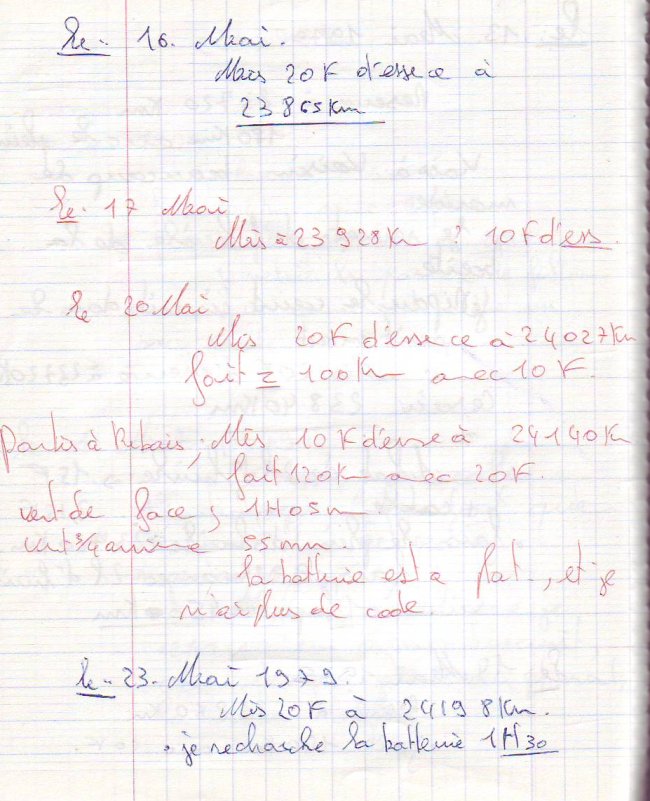 Le. 16. Mai.
Mis 20F d'essece à
23865Km
Le. 17 Mai
Mis à 23928Km ? 10F d'ess.
Le 20 Mai
Mis 20F d'essece à 24027Km
fait ≃ 100Km avec 10F.
partis à Rebais ; Mis 10F d'esse à 24140Km
fait 120Km avec 20F.
vent de face ; 1H05m
vent 3/4 arrière 55mn.
la batterie est a plat, et je
n'ai plus de code.
le. 23. Mai 1979.
Mis 20F à 24198Km.
. je recharche la batterie 1H30